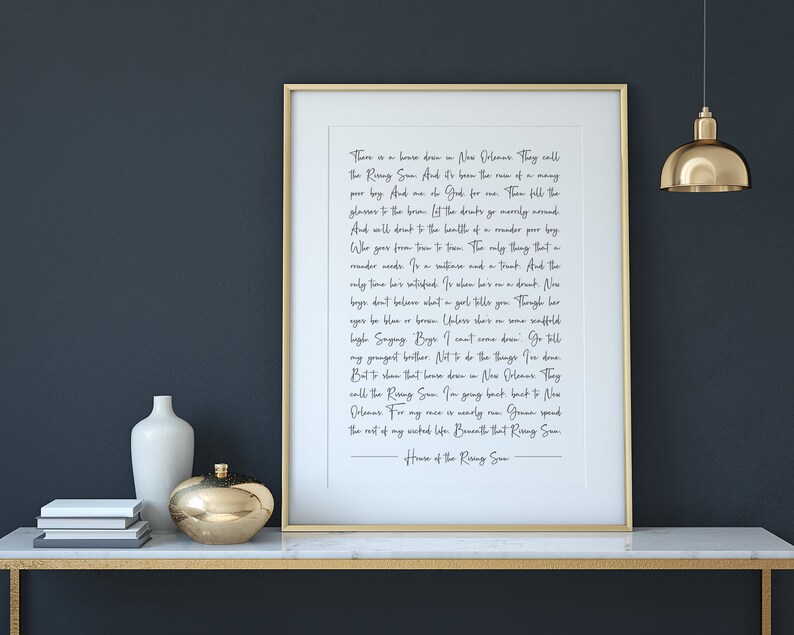 There is a house down in New Orleans. They call
the Rising Sun. And it's been the ruin of a many
poor boy. And me, oh God, for one. Then fill the
glasses to the brim. Let the drinks go merrily around.
And we'll drink to the health of a rounder poor boy.
Who goes from town to town. The only thing that a
rounder needs. Is a suitcase and a trunk. And the
only time he's satisfied. Is when he's on a drunk. Now
boys, don't believe what a girl tells you. Though her
eyes be blue or brown. Unless she's on some scaffold
high. Saying, "Boys, I can't come down". Go tell
my youngest brother. Not to do the things I've done.
But to shun that house down in New Orleans. They
call the Rising Sun. I'm going back, back to New
Orleans. For my race is nearly run. Gonna spend
the rest of my wicked life. Beneath that Rising Sun.
House of the Rising Sun